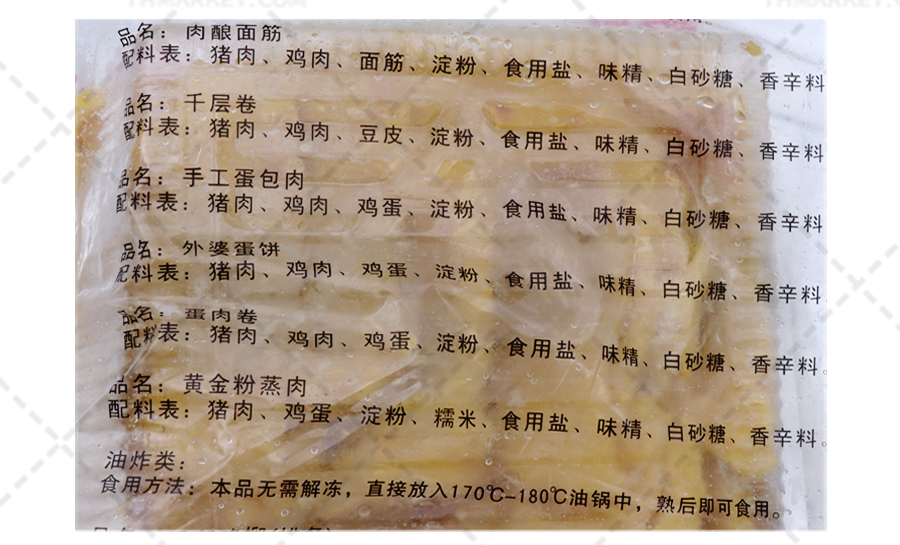 品名：肉酿面筋
配料表：猪肉、鸡肉、面筋、淀粉、食用盐、味精、白砂糖、香辛料
品名：千层卷
配料表：猪肉、鸡肉、豆皮、淀粉、食用盐、味精、白砂糖、香辛料
品名：手工蛋包肉
配料表：猪肉、鸡肉、鸡蛋、淀粉、食用盐、味精、白砂糖、香辛料
品名：外婆蛋饼
配料表：猪肉、鸡肉、鸡蛋、淀粉、食用盐、味精、白砂糖、香辛料
品名：蛋肉卷
配料表：猪肉、鸡肉、鸡蛋、淀粉、食用盐、味精、白砂糖、香辛料。
品名：黄金粉蒸肉
配料表：猪肉、鸡蛋、淀粉、糯米、食用盐、味精、白砂糖、香辛料。
油炸类：
食用方法：本品无需解冻，直接放入170℃-180℃油锅中，熟后即可食用。